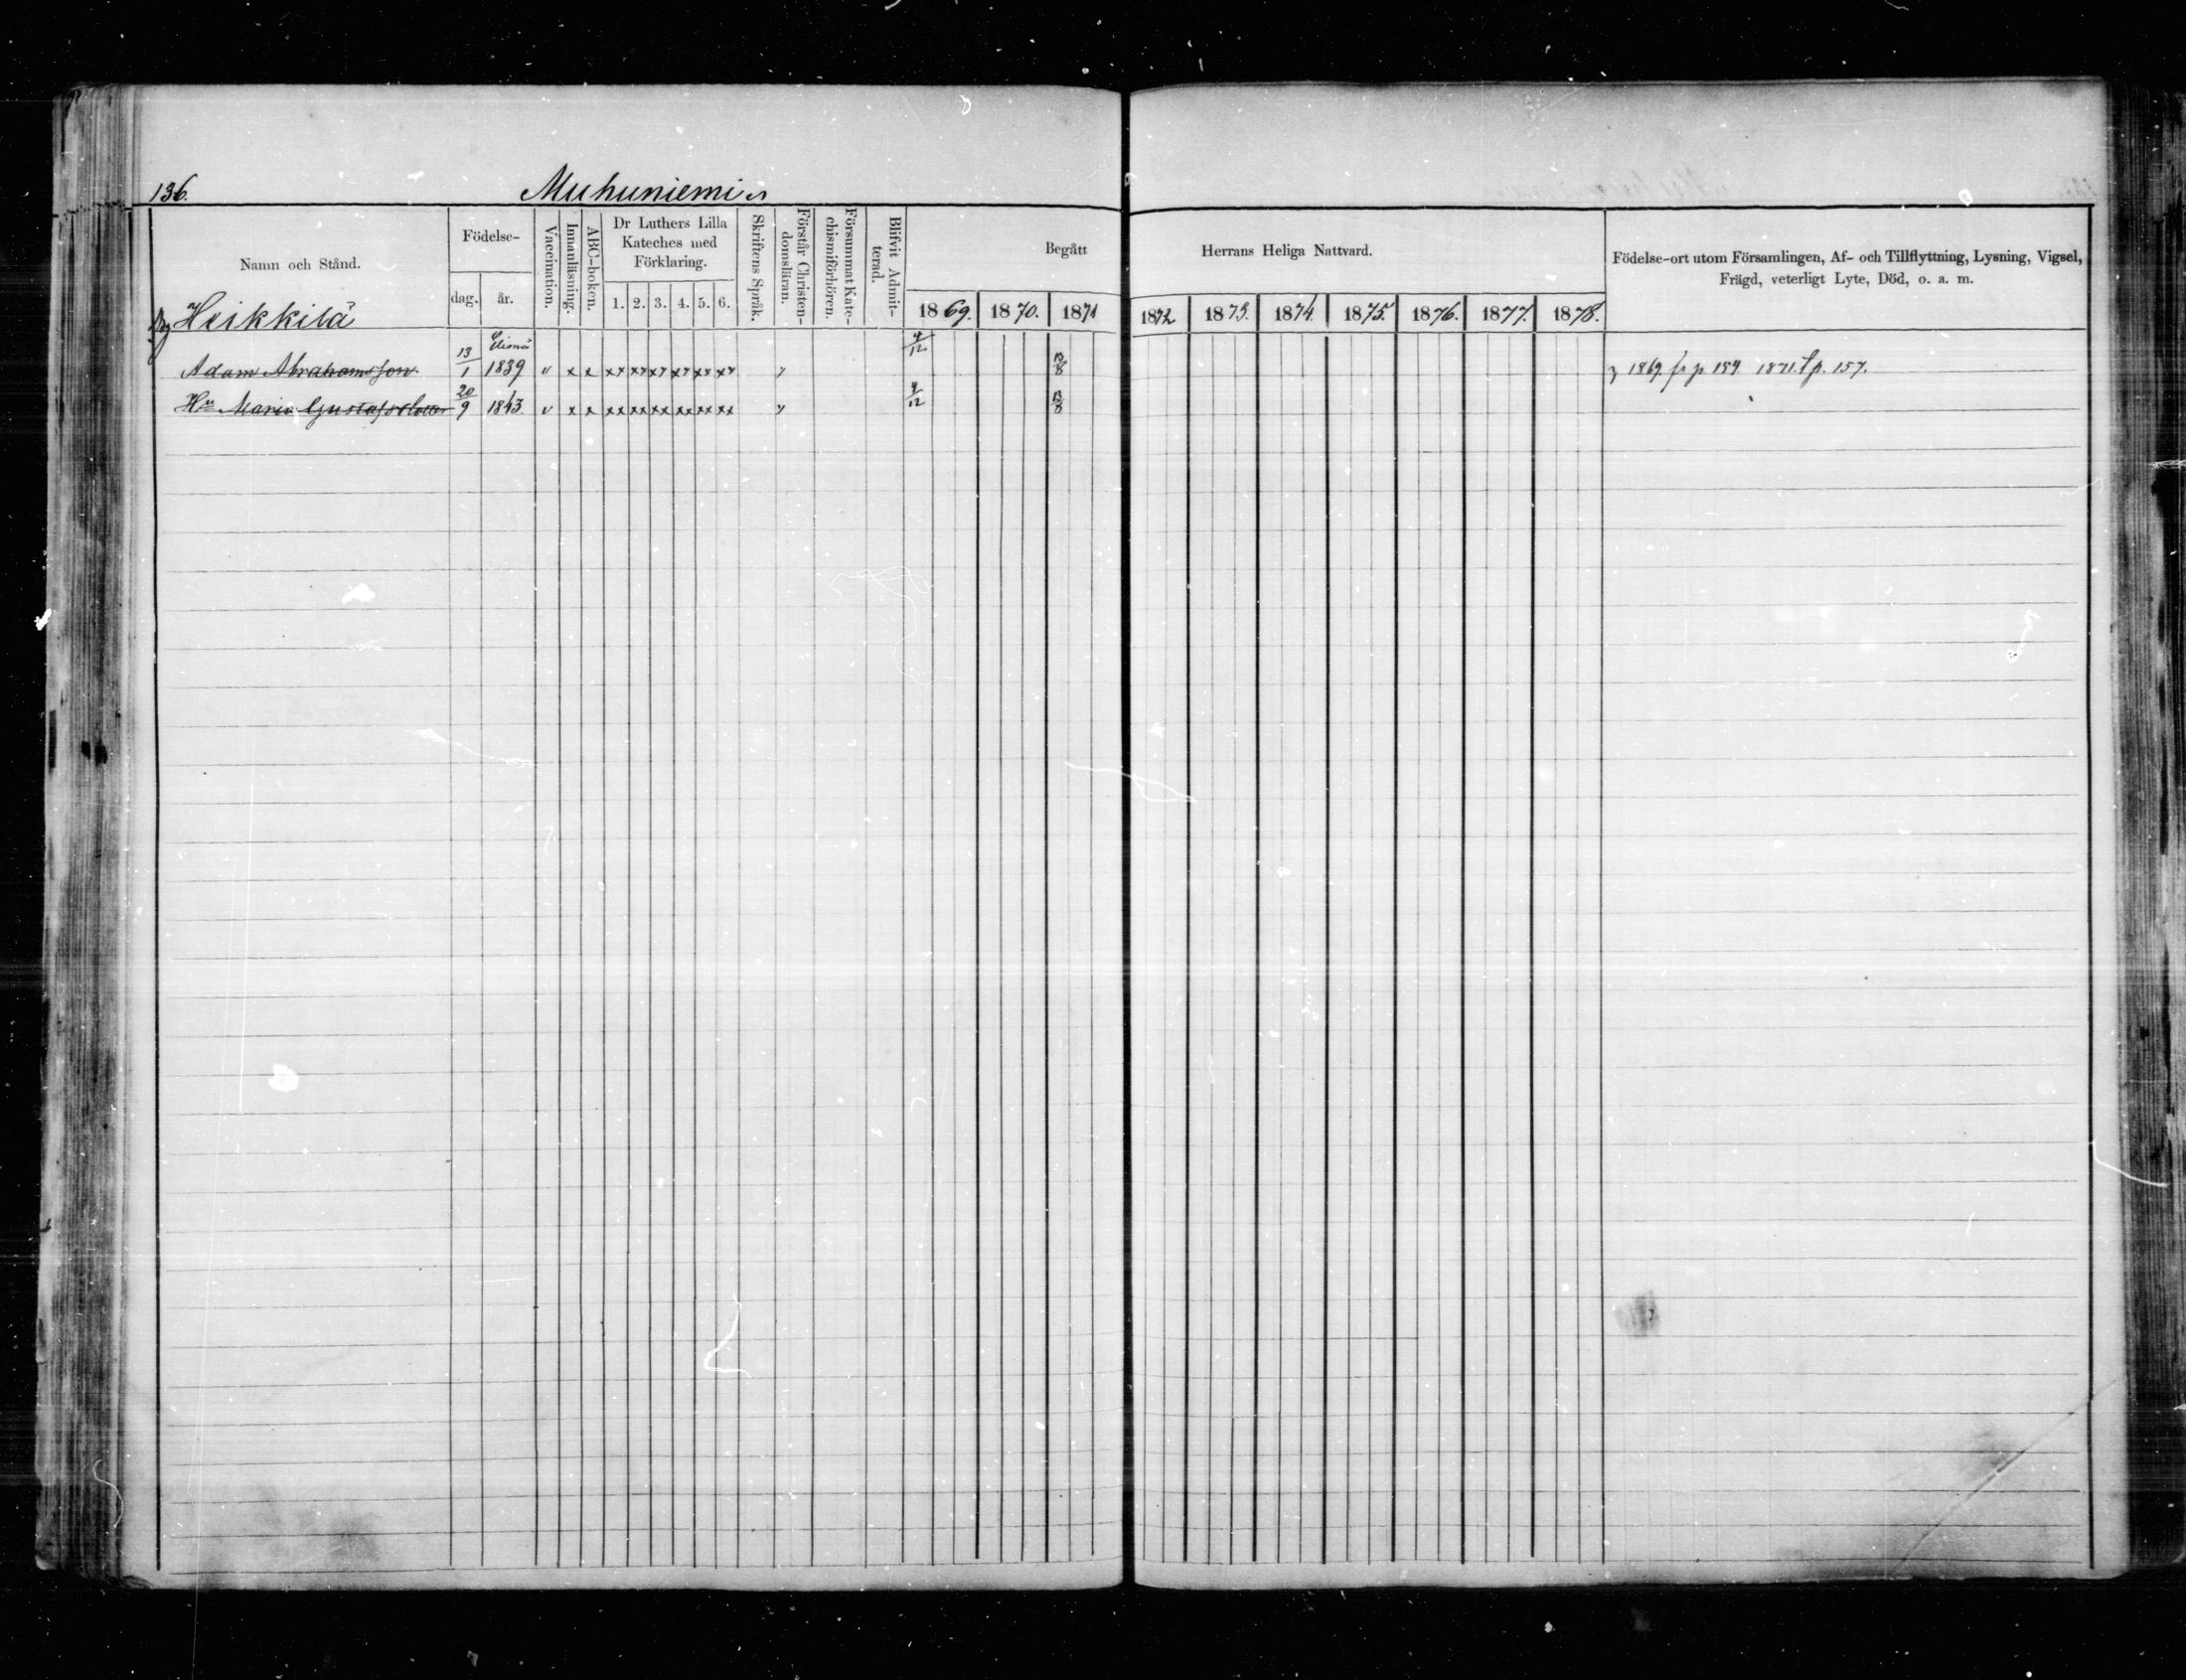 136. Muhuniemi
Namn och Stånd.
Födelse-
dag. år.
Vaccination.
Innanläsning.
ABC-boken.
Dr Luthers Lilla
Kateches med
Förklaring.
1. 2. 3. 4. 5. 6.
Skriftens Språk.
Förstår Christen-
domsläran.
Försummat Kate-
chismiförhören.
Blifvit Admit-
terad.
Begått Herrans Heliga Nattvard.
1869. 1870. 1871 1872 1873. 1874. 1875. 1876. 1877. 1878.
Födelse-ort utom Församlingen, Af- och Tillflyttning, Lysning, Vigsel,
Frägd, veterligt Lyte, Död, o. a. m.
Heikkilä
Elimä
Adam Abrahamsson 13/1 1839 v x x xx xx xx xx xx xx 4/12 13/8 1869 fr p 159 1871. t p. 157.
Hu Maria Gustafsdotter 20/9 1843. v x x xx xx xx xx xx xx 4/12 13/8